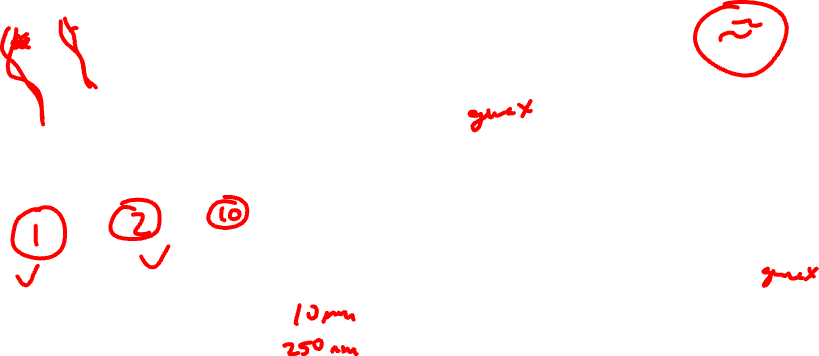 gene X
1 2 10
gene X
10 µm
250 nm